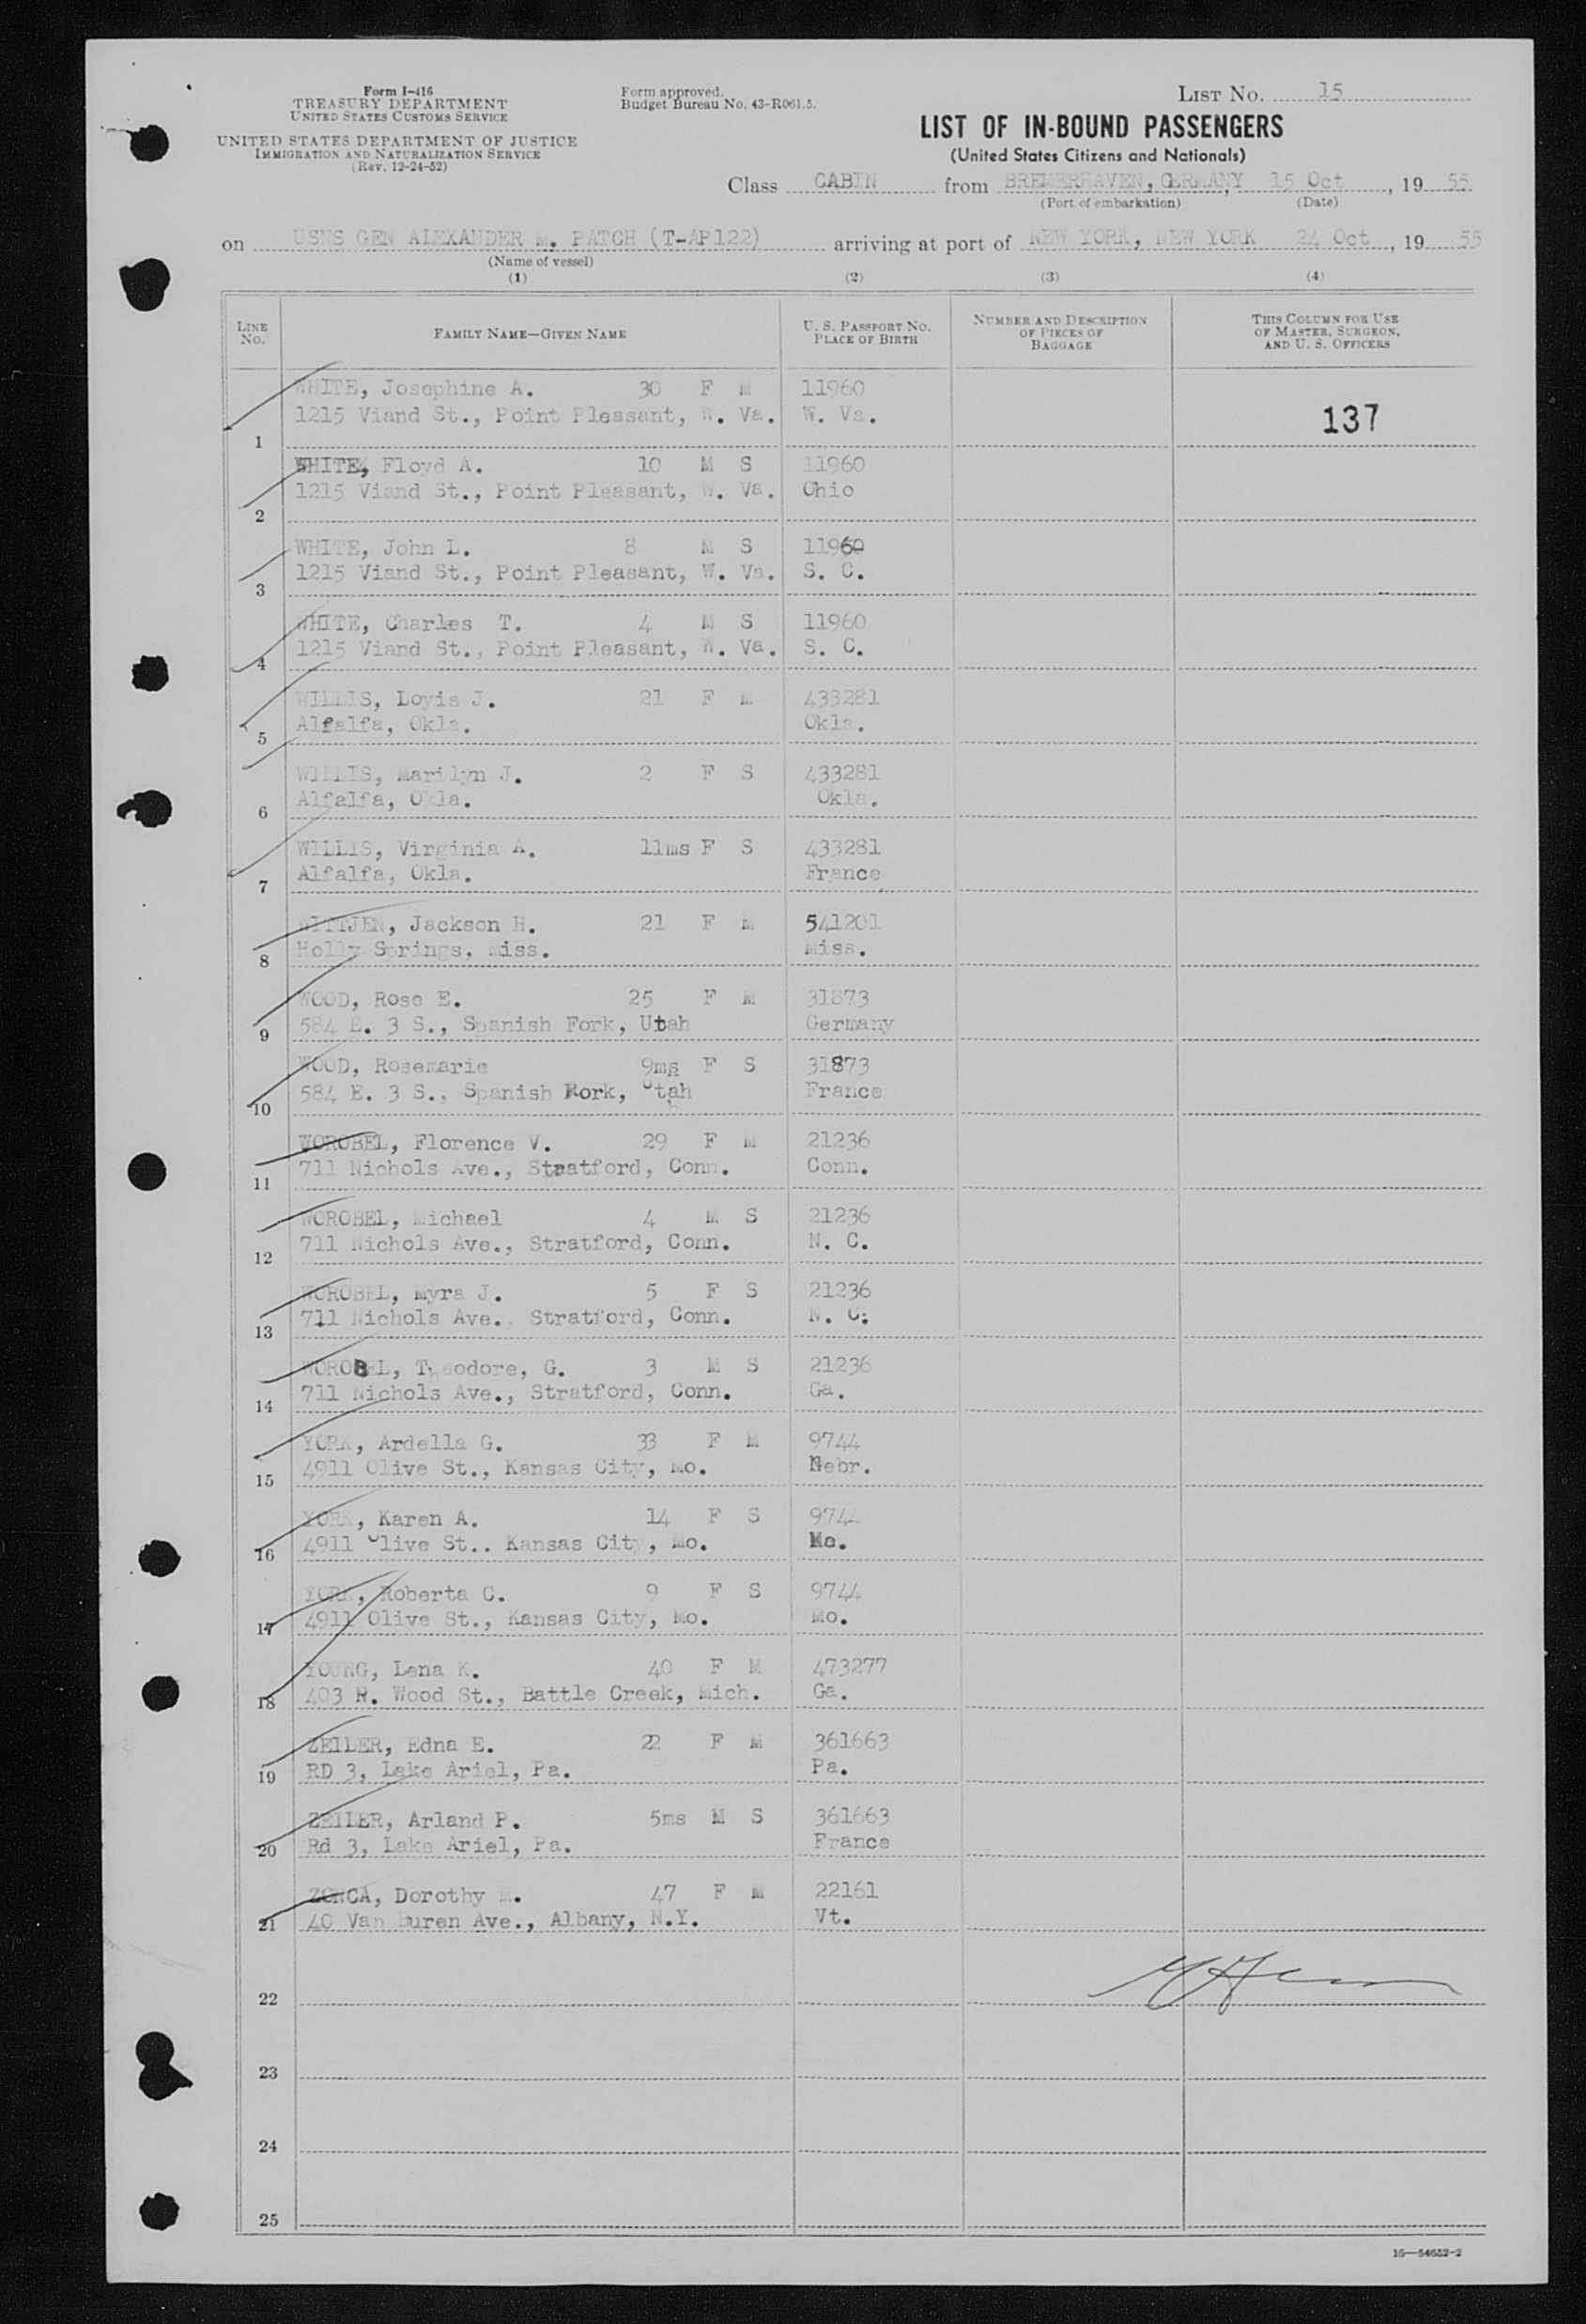 Form I-416
TREASURY DEPARTMENT
UNITED STATES CUSTOMS SERVICE
UNITED STATES DEPARTMENT OF JUSTICE
IMMIGRATION AND NATURALIZATION SERVICE
(Rev. 12-24-52)
Form approved.
Budget Bureau No. 43-R061.5.
LIST NO. 15
LIST OF IN-BOUND PASSENGERS
(United States Citizens and Nationals)
Class CABIN from BREMERHAVEN, GERMANY, 15 Oct, 19 55
(Port of embarkation) (Date)
on USNS GEN ALEXANDER M. PATCH (T-AP122) arriving at port of NEW YORK, NEW YORK 24 Oct, 19 55
(Name of vessel)
(1) (2) (3) (4)
LINE NO. FAMILY NAME—GIVEN NAME U. S. PASSPORT NO. PLACE OF BIRTH NUMBER AND DESCRIPTION OF PIECES OF BAGGAGE THIS COLUMN FOR USE OF MASTER, SURGEON, AND U. S. OFFICERS
WHITE, Josephine A. 30 F M 11960
1215 Viand St., Point Pleasant, W. Va. W. Va. 137
1
WHITE, Floyd A. 10 M S 11960
1215 Viand St., Point Pleasant, W. Va. Ohio
2
WHITE, John L. 8 M S 11960
1215 Viand St., Point Pleasant, W. Va. S. C.
3
WHITE, Charles T. 4 M S 11960
1215 Viand St., Point Pleasant, W. Va. S. C.
4
WILLIS, Loyis J. 21 F M 433281
Alfalfa, Okla. Okla.
5
WILLIS, Marilyn J. 2 F S 433281
Alfalfa, Okla. Okla.
6
WILLIS, Virginia A. 11ms F S 433281
Alfalfa, Okla. France
7
WITTJEN, Jackson H. 21 F M 541201
Holly Springs, Miss. Miss.
8
WOOD, Rose E. 25 F M 31873
584 E. 3 S., Spanish Fork, Utah Germany
9
WOOD, Rosemarie 9ms F S 31873
584 E. 3 S., Spanish Rork, Utah France
10
WOROBEL, Florence V. 29 F M 21236
711 Nichols Ave., Stratford, Conn. Conn.
11
WOROBEL, Michael 4 M S 21236
711 Nichols Ave., Stratford, Conn. N. C.
12
WOROBEL, Myra J. 5 F S 21236
711 Nichols Ave., Stratford, Conn. N. C.
13
WOROBEL, Theodore, G. 3 M S 21236
711 Nichols Ave., Stratford, Conn. Ga.
14
YORK, Ardella G. 33 F M 9744
4911 Olive St., Kansas City, Mo. Nebr.
15
YORK, Karen A. 14 F S 9744
4911 Olive St.. Kansas City, Mo. Mo.
16
YORK, Roberta C. 9 F S 9744
4911 Olive St., Kansas City, Mo. Mo.
17
YOUNG, Lena K. 40 F M 473277
403 R. Wood St., Battle Creek, Mich. Ga.
18
ZEILER, Edna E. 22 F M 361663
RD 3, Lake Ariel, Pa. Pa.
19
ZEILER, Arland P. 5ms M S 361663
Rd 3, Lake Ariel, Pa. France
20
ZONCA, Dorothy 47 F M 22161
40 Van Buren Ave., Albany, N.Y. Vt.
21
22
23
24
25
16—54652-2